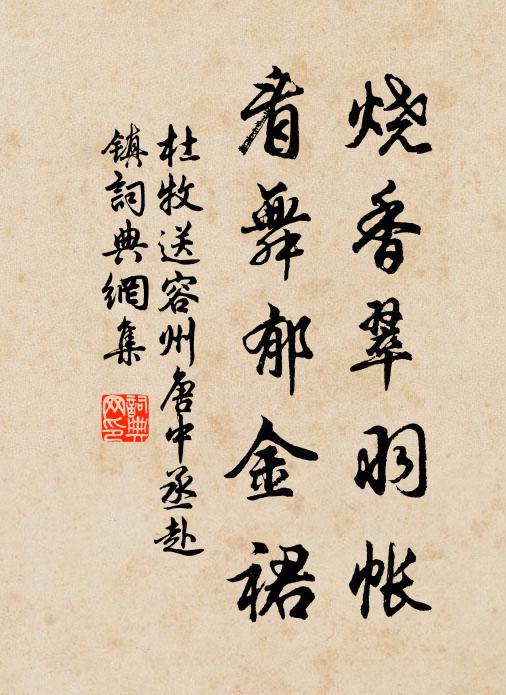 烧香翠羽帐
看舞郁金裙
杜牧送容州唐中丞赴
镇詞典網集
詞典
网印